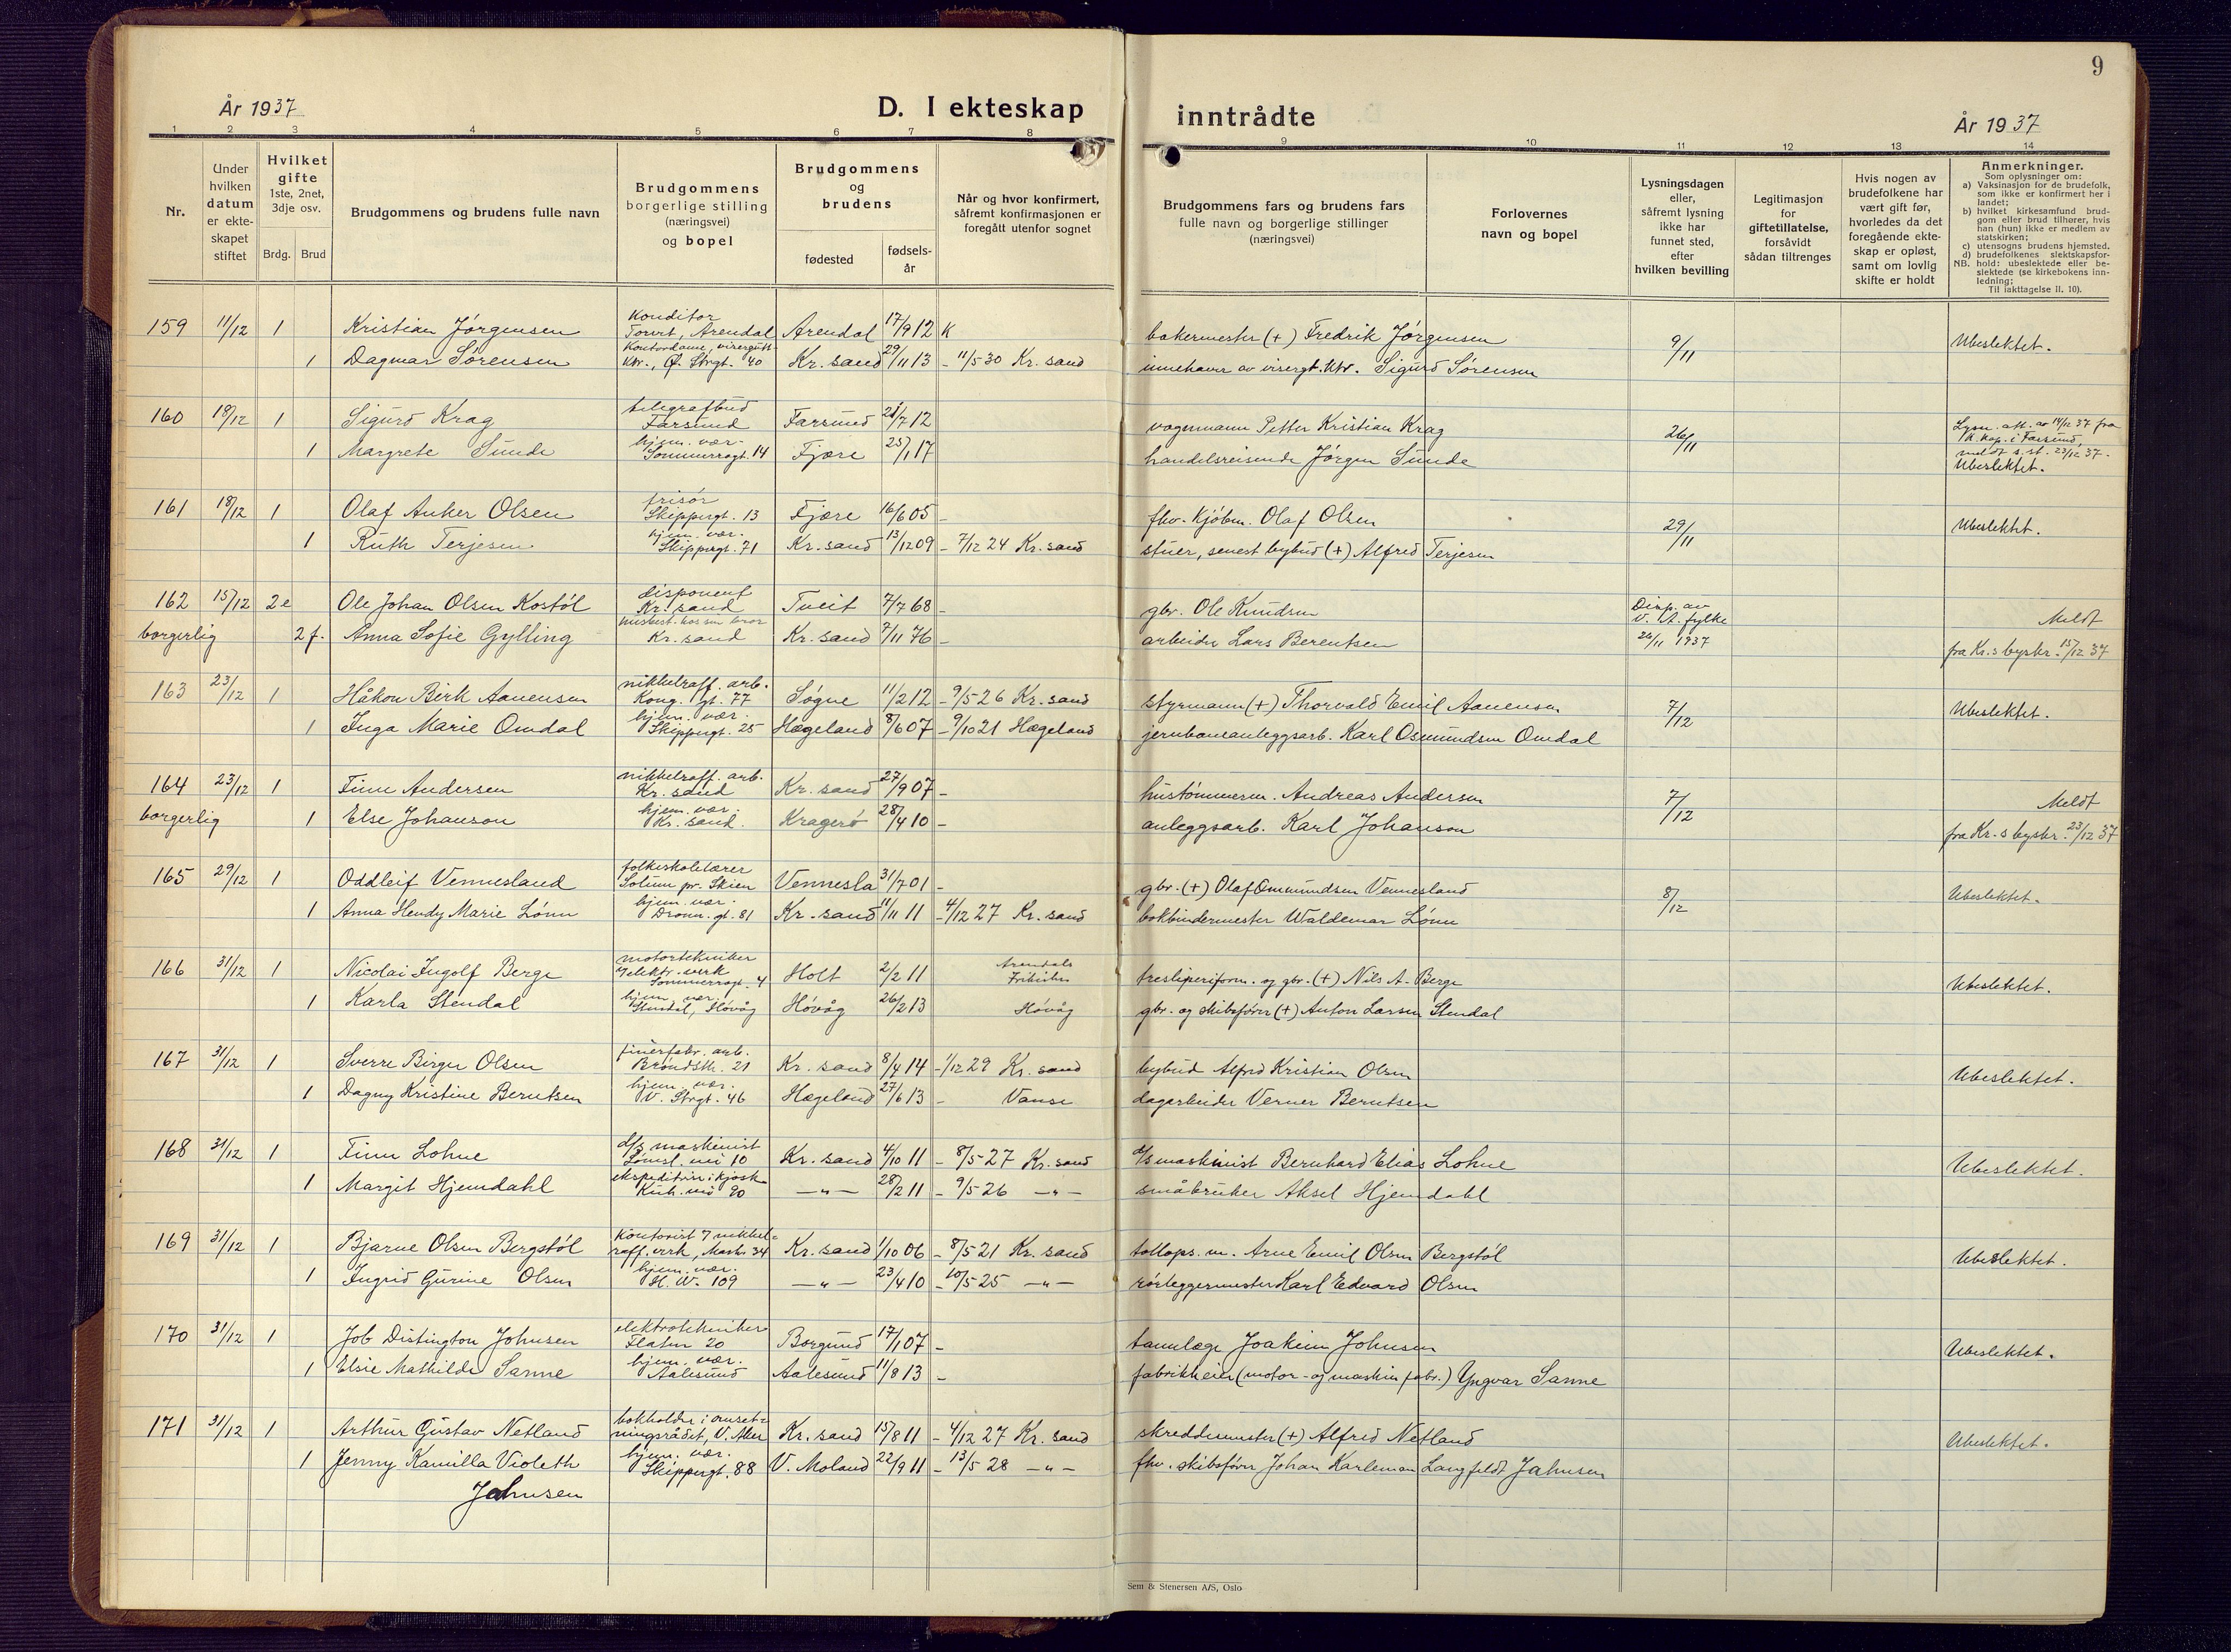 9
År 1937
D. I ekteskap
inntrådte
År 1937
1 2 3 4 5 6 7 8 9 10 11 12 13 14
Nr.
Under hvilken datum er ekteskapet stiftet
Hvilket gifte 1ste, 2net, 3dje osv.
Brdg. Brud
Brudgommens og brudens fulle navn
Brudgommens borgerlige stilling (næringsvei) og bopel
Brudgommens og brudens
fødested
fødselsår
Når og hvor konfirmert, såfremt konfirmasjonen er foregått utenfor sognet
Brudgommens fars og brudens fars fulle navn og borgerlige stillinger (næringsvei)
Forlovernes navn og bopel
Lysningsdagen eller, såfremt lysning ikke har funnet sted, efter hvilken bevilling
Legitimasjon for giftetillatelse, forsåvidt sådan tiltrenges
Hvis nogen av brudefolkene har vært gift før, hvorledes da det foregående ekteskap er opløst, samt om lovlig skifte er holdt
Anmerkninger.
Som oplysninger om:
a) Vaksinasjon for de brudefolk, som ikke er konfirmert her i landet;
b) hvilket kirkesamfund brudgom eller brud tilhører, hvis han (hun) ikke er medlem av statskirken;
c) utensogns brudens hjemsted.
d) brudefolkenes slektskapsforhold: ubeslektede eller beslektede (se kirkebokens innledning;
NB.
Til iakttagelse II. 10).
159 11/12 1 Kristian Jørgensen Konditor Torvet, Arendal Arendal 17/9 12 K bakermester (+) Fredrik Jørgensen 9/11 Ubeslektet.
1 Dagmar Sørensen Kontordame, Ø. Strgt. 40 Kr. sand 29/11 13 - 11/5 30 Kr. sand innehaver av visergt. ktr. Sigurd Sørensen
160 18/12 1 Sigurd Krag telegrafbud Farsund Farsund 21/7 12 vognmann Petter Kristian Krag 26/11 Lysn. att. av 14/12 37 fra
1 Margrete Sunde hjem. vær. Sommerrogt. 14 Fjære 25/1 17 handelsreisende Jørgen Sunde meldt s. st. 23/12 37. Ubeslektet.
161 18/12 1 Olaf Anker Olsen frisør Skippergt. 13 Fjære 16/6 05 - fhv. kjøbm. Olaf Olsen 29/11 Ubeslektet.
1 Ruth Terjesen hjem. vær. Skippergt. 71 Kr. sand 13/12 09 - 7/12 24 Kr. sand stuer, senest bybud (+) Alfred Terjesen
162 15/12 2 e Ole Johan Olsen Kostøl disponent Kr. sand Tveit 7/7 68 - gbr. Ole Knudsen Disp. av V. A. fylke 26/11 1937 Meldt
borgerlig 2 f. Anna Sofie Gylling husbest. hos sin bror Kr. sand Kr. sand 7/11 76 - arbeider Lars Berentsen fra Kr.s byskr. 15/12 37
163 23/12 1 Håkon Birk Aanensen nikkelraff. arb. Kong. gt. 77 Søgne 11/2 12 - 9/5 26 Kr. sand styrmann (+) Thorvald Emil Aanensen 7/12 Ubeslektet.
1 Inga Marie Omdal hjem. vær. Skippergt. 25 Hægeland 8/6 07 - 9/10 21 Hægeland jernbaneanleggsarb. Karl Osmundsen Omdal
164 23/12 1 Finn Andersen nikkelraff. arb. Kr. sand Kr. sand 27/9 07 - hustømmerm. Andreas Andersen 7/12 Meldt
borgerlig 1 Else Johanson hjem. vær. Kr. sand. Kragerø 28/4 10 - anleggsarb. Karl Johanson fra Kr.s byskr. 23/12 37
165 29/12 1 Oddleif Vennesland folkeskolelærer Solum pr. Skien Vennesla 31/7 01 - gbr. (+) Olaf Ommundsen Vennesland 8/12 Ubeslektet.
1 Anna Hendy Marie Lønn hjem. vær. Dronn. gt. 81 Kr. sand 11/11 11 - 4/12 27 Kr. sand bokbindermester Waldemar Lønn
166 31/12 1 Nicolai Ingolf Berge motortekniker elektr. verk Sommerrogt. 4 Holt 2/2 11 Arendals Frikirke tresliperiform. og gbr. (+) Nils A. Berge Ubeslektet.
1 Karla Stendal hjem. vær. Stendal, Høvåg Høvåg 26/2 13 Høvåg gbr. og skibsfører (+) Anton Larsen Stendal
167 31/12 1 Sverre Birger Olsen finérfabr. arb. Brøndstr. 21 Kr. sand 8/4 14 - 1/12 29 Kr. sand bybud Alfred Kristian Olsen Ubeslektet.
1 Dagny Kristine Berntsen hjem. vær. V. Strgt. 46 Hægeland 27/6 13 - Vanse dagarbeider Verner Berntsen
168 31/12 1 Finn Lohne d/s maskinist Lømsl. vei 10 Kr. sand 4/10 11 - 8/5 27 Kr. sand d/s maskinist Bernhard Elias Lohne Ubeslektet.
1 Margit Hjemdahl ekspeditrise i kjosk Kuh. vei 20 —"— 28/2 11 - 9/5 26 —"— småbruker Aksel Hjemdahl
169 31/12 1 Bjarne Olsen Bergstøl kontorist v/ nikkelraff. verk, Mark. 34 Kr. sand 1/10 06 - 8/5 21 Kr. sand tollops. m. Arne Emil Olsen Bergstøl Ubeslektet.
1 Ingrid Gurine Olsen hjem. vær. H. W. 109 —"— 23/4 10 - 10/5 25 —"— rørleggermester Karl Edvard Olsen
170 31/12 1 Job Distington Johnsen elektrotekniker Flaten 20 Borgund 17/1 07 - tannlæge Joakim Johnsen Ubeslektet.
1 Elsie Mathilde Sanne hjem. vær. Aalesund Aalesund 11/8 13 - fabrikkeier (motor- og maskin fabr.) Yngvar Sanne
171 31/12 1 Arthur Gustav Netland bokholder i omsetningsrådet, V. Aker Kr. sand 15/8 11 - 4/12 27 Kr. sand skreddermester (+) Alfred Netland Ubeslektet.
1 Jenny Kamilla Violeth hjem. vær. Skippergt. 88 V. Moland 22/9 11 - 13/5 28 —"— fhv. skibsfører Johan Karleman Langfeldt Jahnsen
Jahnsen
Sem & Stenersen A/S, Oslo